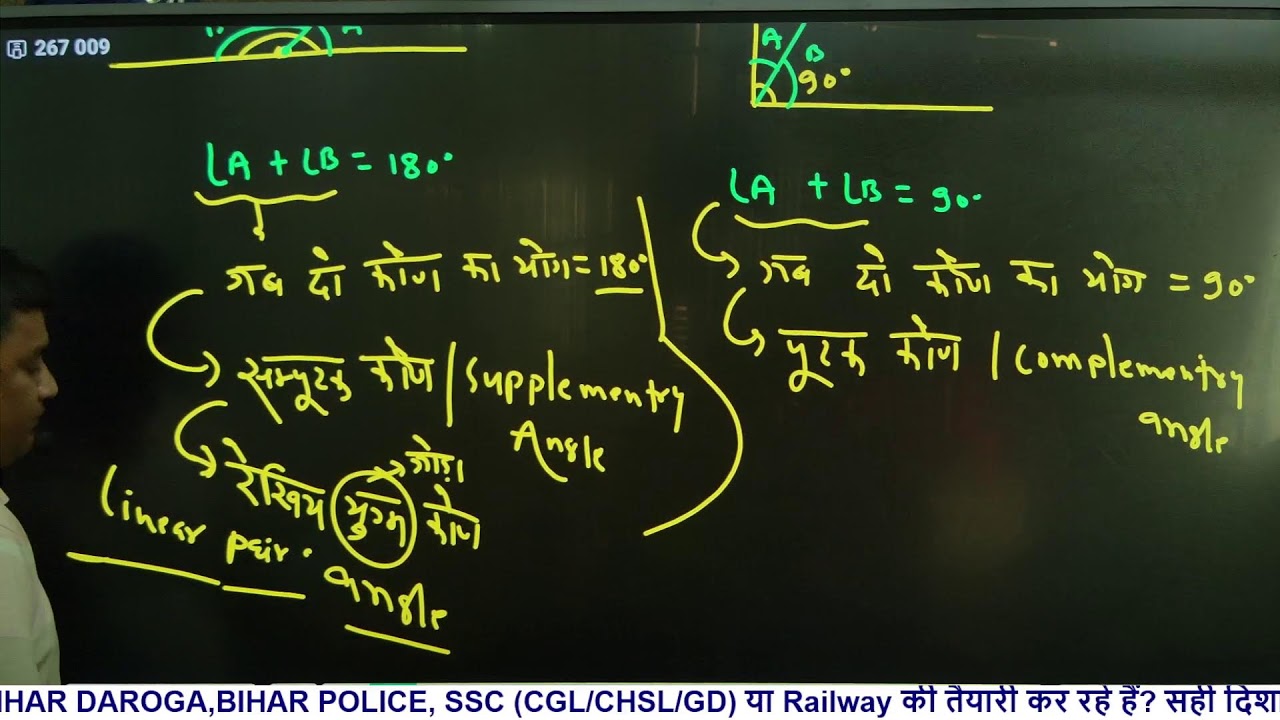 267 009
A
A
B
90°
∠A + ∠B = 180°
जब दो कोण का योग = 180°
सम्पूरक कोण / Supplementry
Angle
जोड़ा
रेखिय युग्म कोण
Linear pair.
angle
∠A + ∠B = 90°
जब दो कोण का योग = 90°
पूरक कोण / Complementry
angle
IHAR DAROGA,BIHAR POLICE, SSC (CGL/CHSL/GD) या Railway की तैयारी कर रहे हैं? सही दिशा